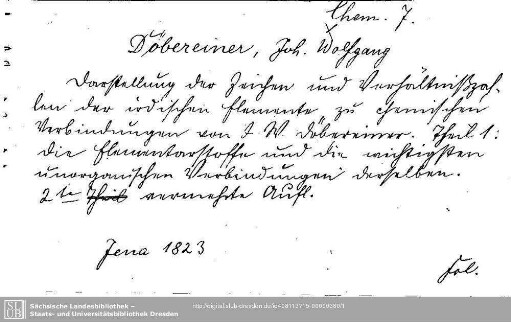 Chem. 7.
Döbereiner, Joh. Wolfgang
Darstellung der Zeichen und Verhältnißzah-
len der irdischen Elemente zu chemischen
Verbindungen von J. W. Döbereiner. Theil 1:
die Elementarstoffe und die wichtigsten
unorganischen Verbindungen derselben.
2te Theil vermehrte Aufl.
Jena 1823
Fol.
Sächsische Landesbibliothek –
Staats- und Universitätsbibliothek Dresden